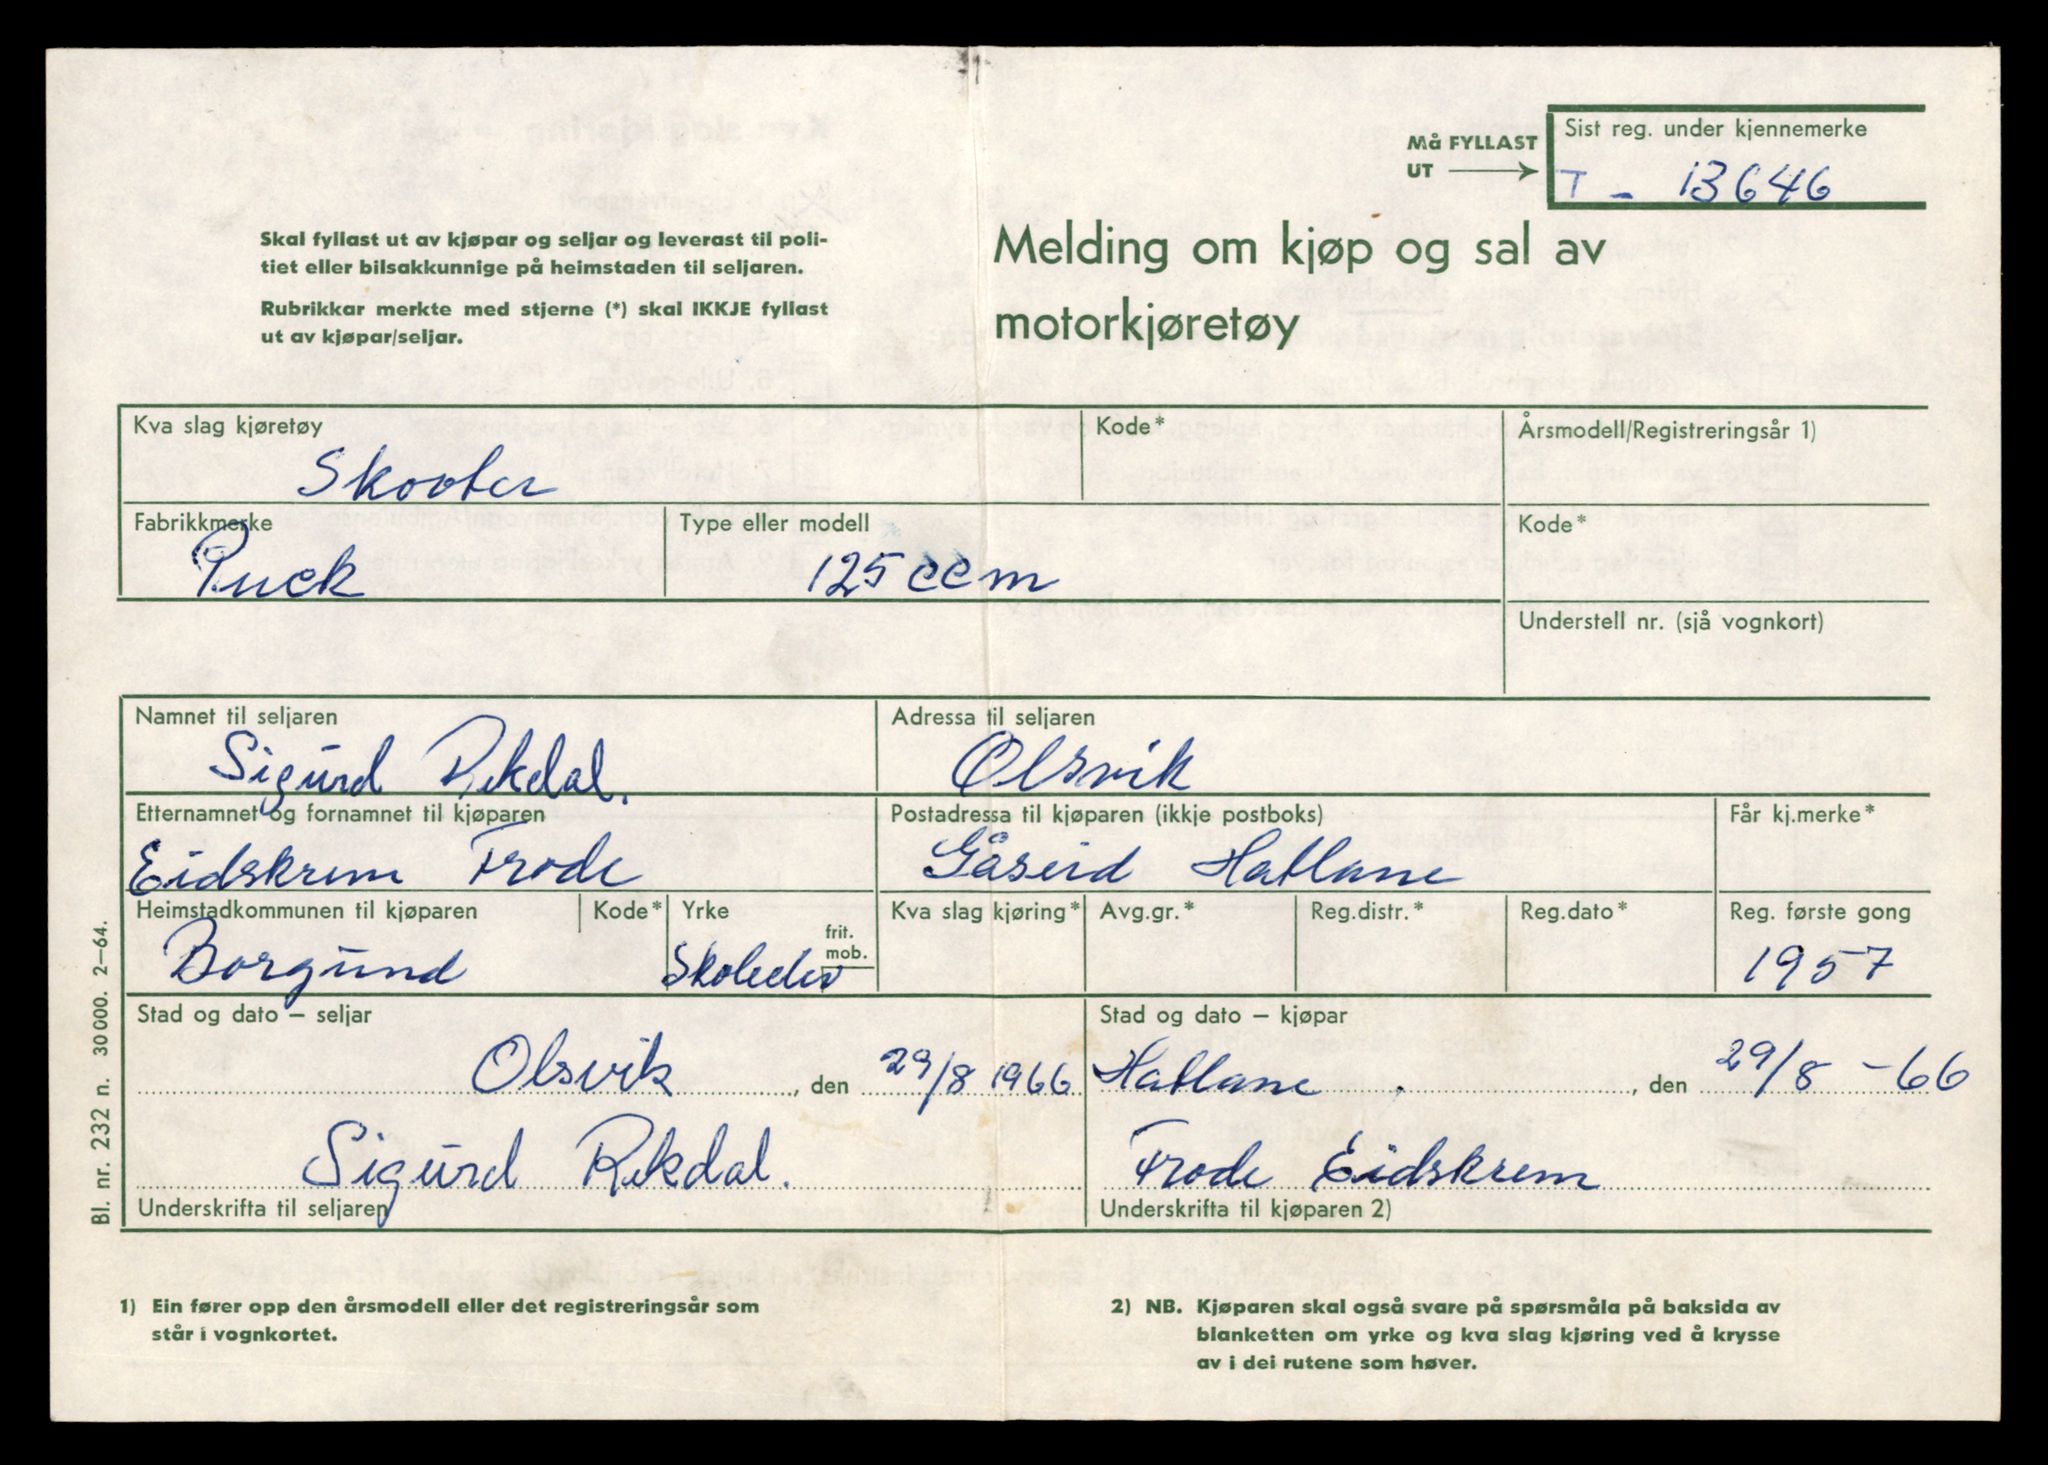 Må FYLLAST
UT
Sist reg. under kjennemerke
T - 13646
Skal fyllast ut av kjøpar og seljar og leverast til poli-
tiet eller bilsakkunnige på heimstaden til seljaren.
Rubrikkar merkte med stjerne (*) skal IKKJE fyllast
ut av kjøpar/seljar.
Melding om kjøp og sal av
motorkjøretøy
Kva slag kjøretøy
Skooter
Kode*
Årsmodell/Registreringsår 1)
Fabrikkmerke
Puck
Type eller modell
125 ccm
Kode*
Understell nr. (sjå vognkort)
Namnet til seljaren
Sigurd Rekdal.
Adressa til seljaren
Olsvik
Etternamnet og fornamnet til kjøparen
Eidskrem Frode
Postadressa til kjøparen (ikkje postboks)
Gåseid Hatlane
Får kj.merke*
Heimstadkommunen til kjøparen
Borgund
Kode*
Yrke
frit.
mob.
Skoleelev
Kva slag kjøring*
Avg.gr.*
Reg.distr.*
Reg.dato*
Reg. første gong
1957
Stad og dato – seljar
Olsvik, den 29/8 1966
Stad og dato – kjøpar
Hatlane, den 29/8 -66
Sigurd Rekdal.
Underskrifta til seljaren
Frode Eidskrem
Underskrifta til kjøparen 2)
Bl. nr. 232 n. 30 000. 2–64.
1) Ein fører opp den årsmodell eller det registreringsår som
står i vognkortet.
2) NB. Kjøparen skal også svare på spørsmåla på baksida av
blanketten om yrke og kva slag kjøring ved å krysse
av i dei rutene som høver.